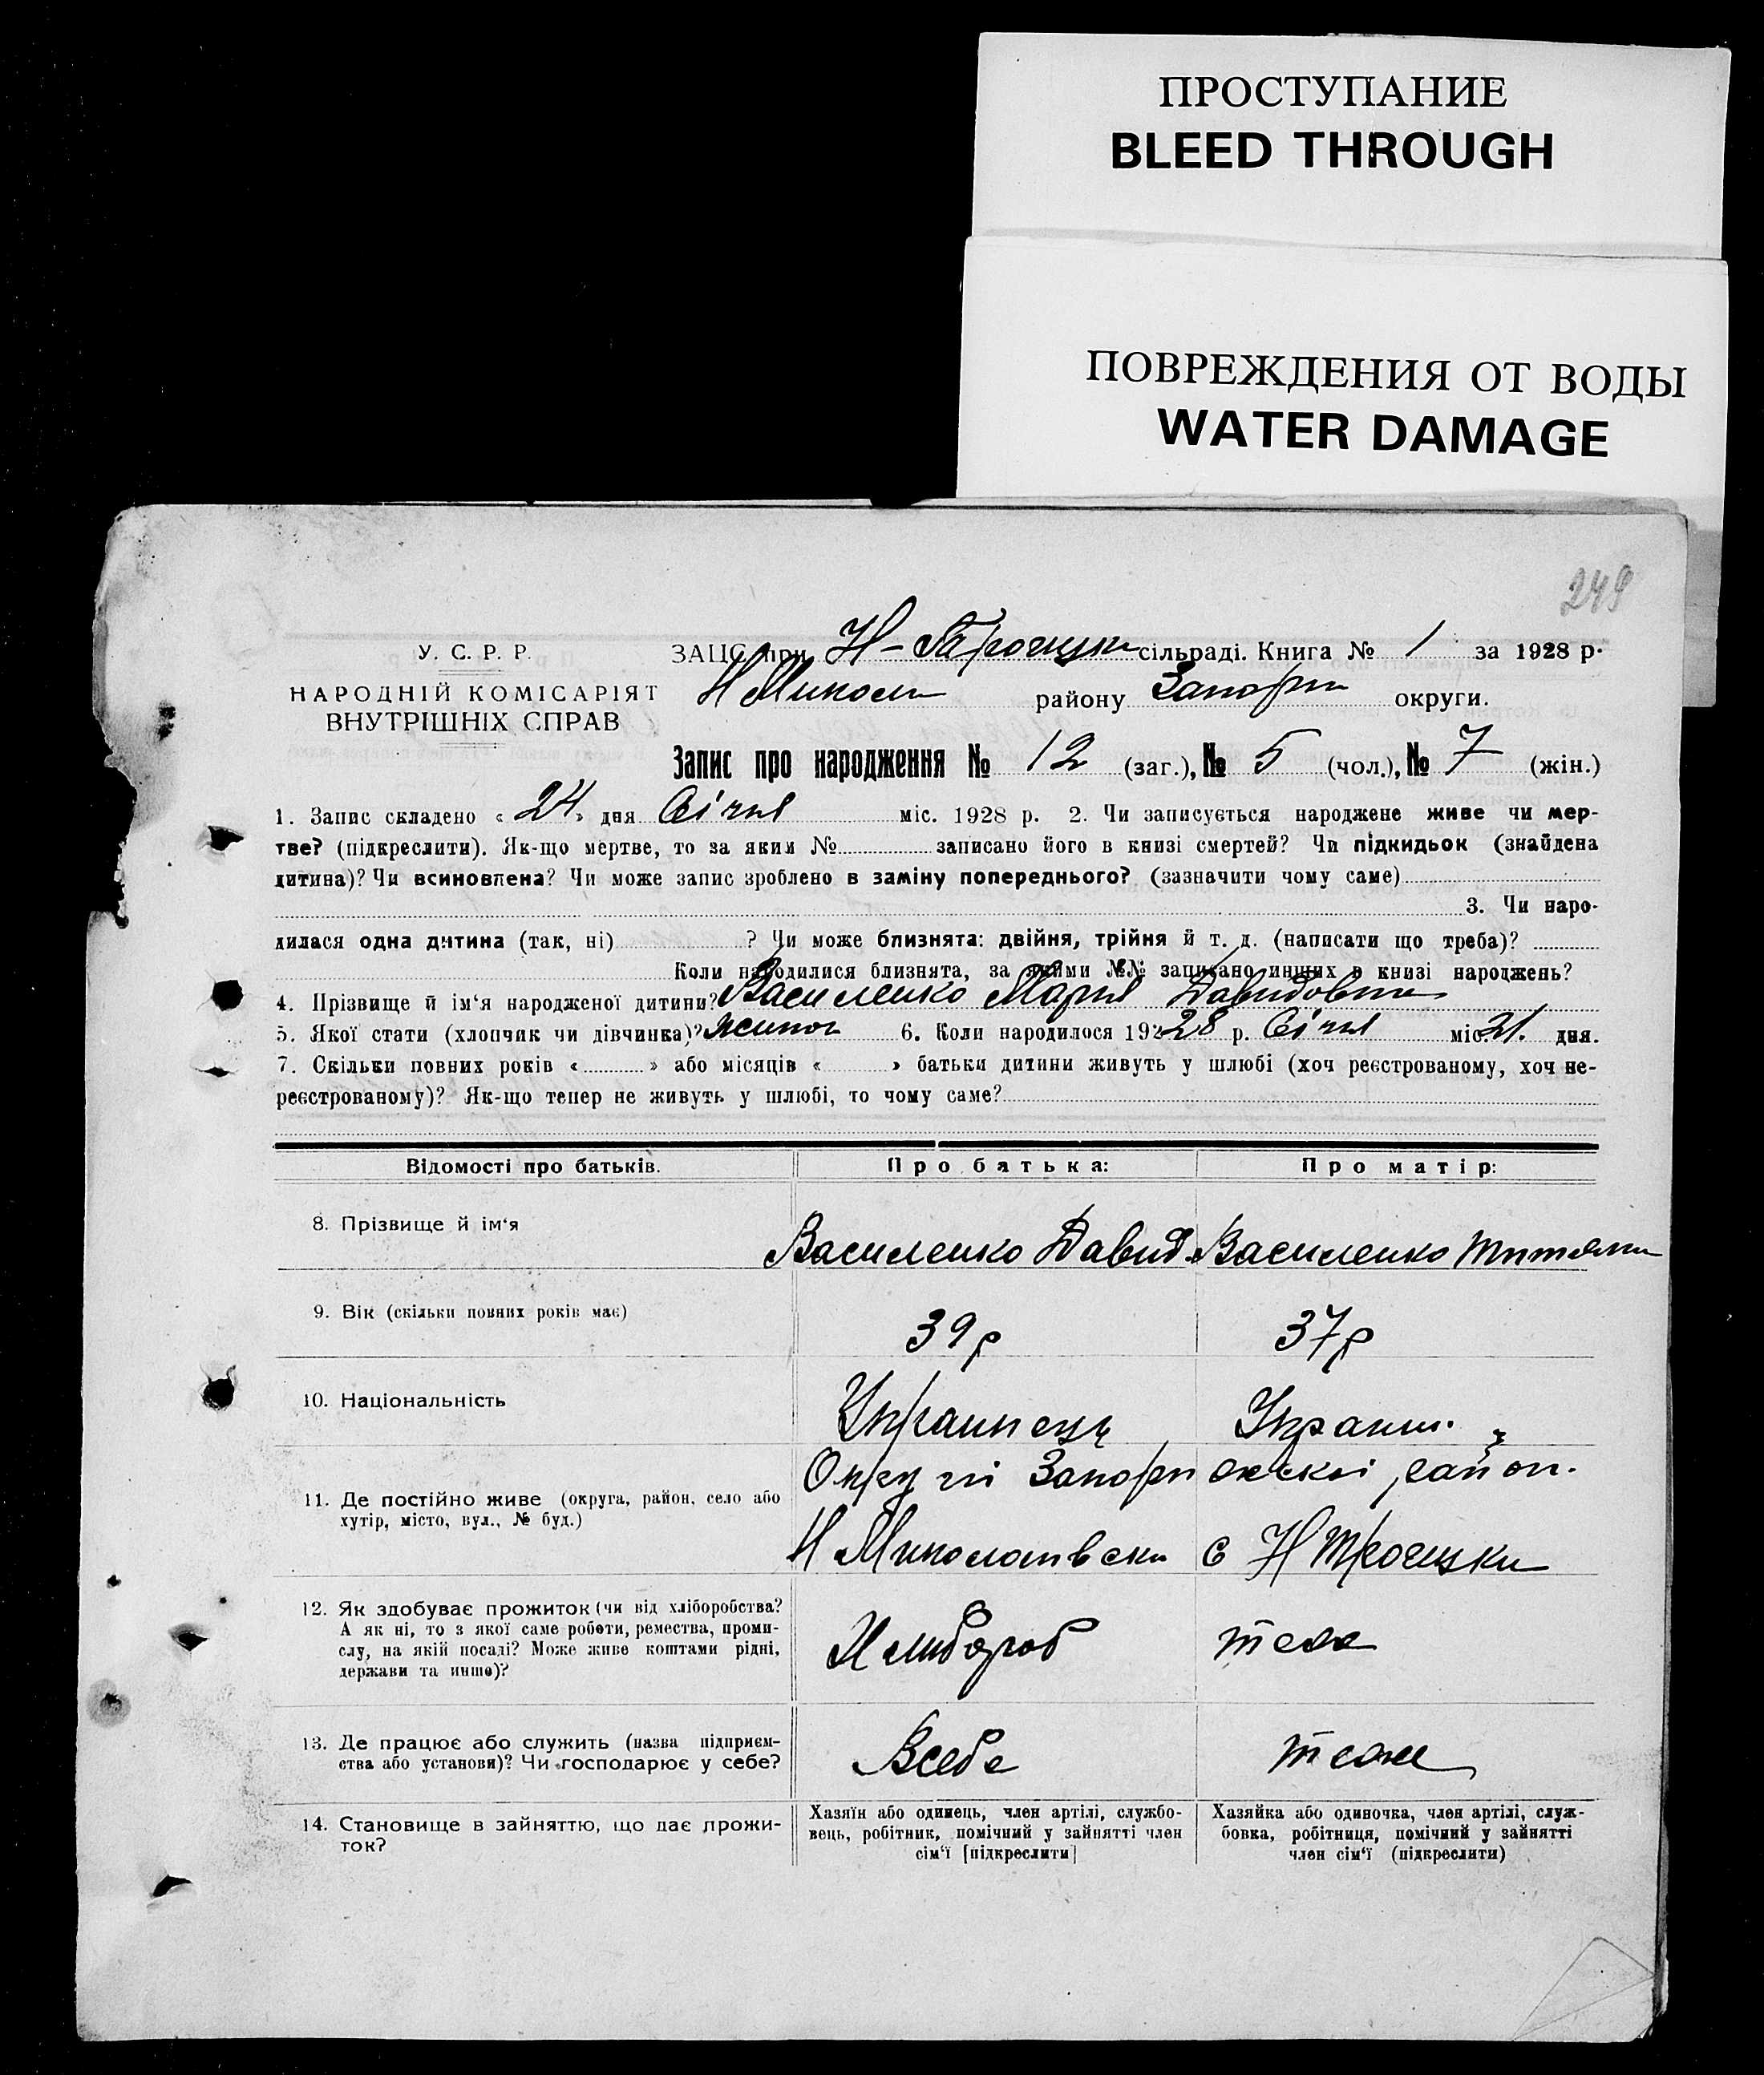 ПРОСТУПАНИЕ
BLEED THROUGH
ПОВРЕЖДЕНИЯ ОТ ВОДЫ
WATER DAMAGE
249
У. С. Р. Р.
НАРОДНІЙ КОМІСАРІЯТ
ВНУТРІШНІХ СПРАВ
ЗАЦС при Н-Троицьки сільраді. Книга № 1 за 1928 р.
Н Микола району Запоріз округи.
Запис про народження № 12 (заг.), № 5 (чол.), № 7 (жін.)
1. Запис складено « 24 » дня Січня міс. 1928 р. 2. Чи записується народжене живе чи мер-
тве? (підкреслити). Як-що мертве, то за яким № записано його в книзі смертей? Чи підкидьок (знайдена
дитина)? Чи всиновлена? Чи може запис зроблено в заміну попереднього? (зазначити чому саме)
3. Чи наро-
дилася одна дитина (так, ні) ? Чи може близнята: двійня, трійня й т. д. (написати що треба)?
Коли народилися близнята, за якими №№ записано инших в книзі народжень?
4. Прізвище й ім'я народженої дитини? Василенко Мария Давидовна
5. Якої стати (хлопчик чи дівчинка)? жиноч 6. Коли народилося 19228 р. Січня міс. 21. дня.
7. Скільки повних років « » або місяців « » батьки дитини живуть у шлюбі (хоч реєстрованому, хоч не-
реєстрованому)? Як-що тепер не живуть у шлюбі, то чому саме?
Відомості про батьків. Про батька: Про матір:
8. Прізвище й ім'я Василенко Давид Василенко
9. Вік (скільки повних років має) 39 р 37 р
10. Національність Украинець Украин.
11. Де постійно живе (округа, район, село або
хутір, місто, вул., № буд.)
Округи Запорі район.
Н Миколаивски с Н Троицьки
12. Як здобуває прожиток (чи від хліборобства?
А як ні, то з якої саме роботи, ремества, проми-
слу, на якій посаді? Може живе коштами рідні,
держави та инше)?
Хлибороб теж
13. Де працює або служить (назва підприєм-
ства або установи)? Чи господарює у себе?
Всебе теже
14. Становище в зайняттю, що дає прожи-
ток?
Хазяїн або одинець, член артілі, службо-
вець, робітник, помічний у зайнятті член
сім'ї [підкреслити]
Хазяйка або одиночка, член артілі, служ-
бовка, робітниця, помічний у зайнятті
член сім'ї (підкреслити)